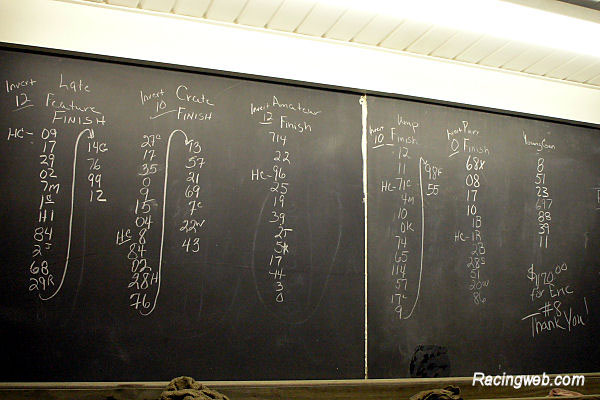 Invert
12
Late
Feature
FINISH
HC- 09
17
29
02
7M
H1
84
68
29R
14G
76
99
12
Invert
10
Crate
FINISH
17
35
0
9
15
04
HC 8
84
02
28H
76
93
57
21
69
22W
43
Invert
12
Amateur
Finish
714
22
HC- 96
25
19
39
17
44
3
0
Invert
10
Ump
Finish
12
11
HC- 71C
4M
10
0K
74
65
114
57
9
98F
55
0
Finish
68X
08
17
10
1B
HC- 1R
2B
51
20W
86
Young Gun
8
51
23
697
88
39
11
$1170.00
for Eric
#8
Thank You!
Racingweb.com